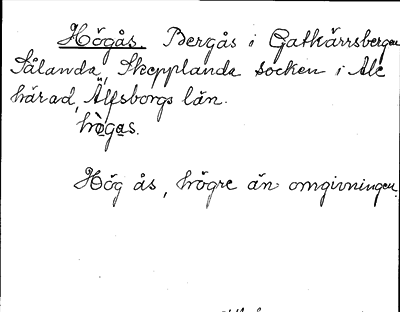 Högås. Bergås i Gatkärrsbergen
Sålanda, Skepplanda socken i Ale
härad, Älfsborgs län.
hògas.
Hög ås, högre än omgivningen.